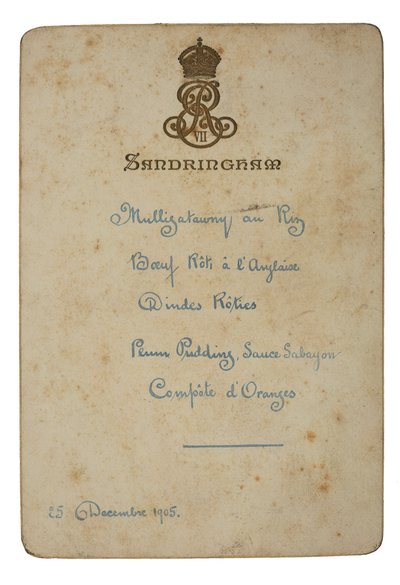 VII
SANDRINGHAM
Mulligatawny au Riz
Bœuf Rôti à l'Anglaise
Dindes Rôties
Plum Pudding, Sauce Sabayon
Compôte d'Oranges
25 Decembre 1905.